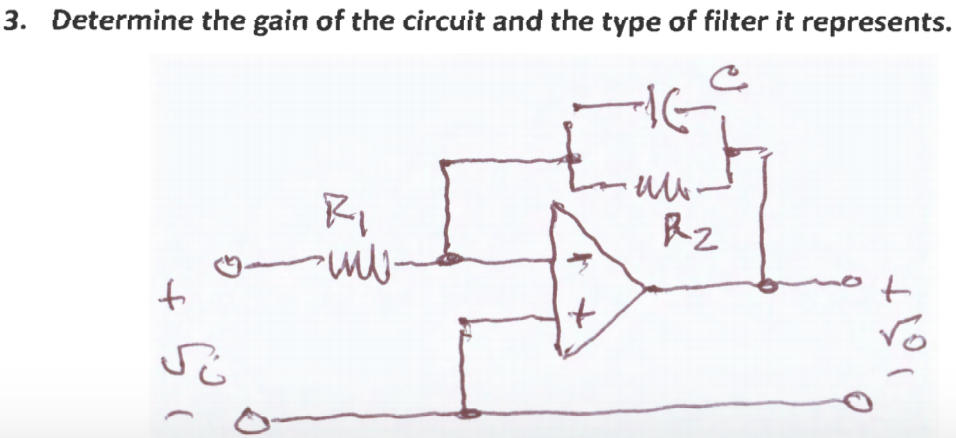 3. Determine the gain of the circuit and the type of filter it represents.
C
R1
R2
-
+
+
+
vi
vo
-
-